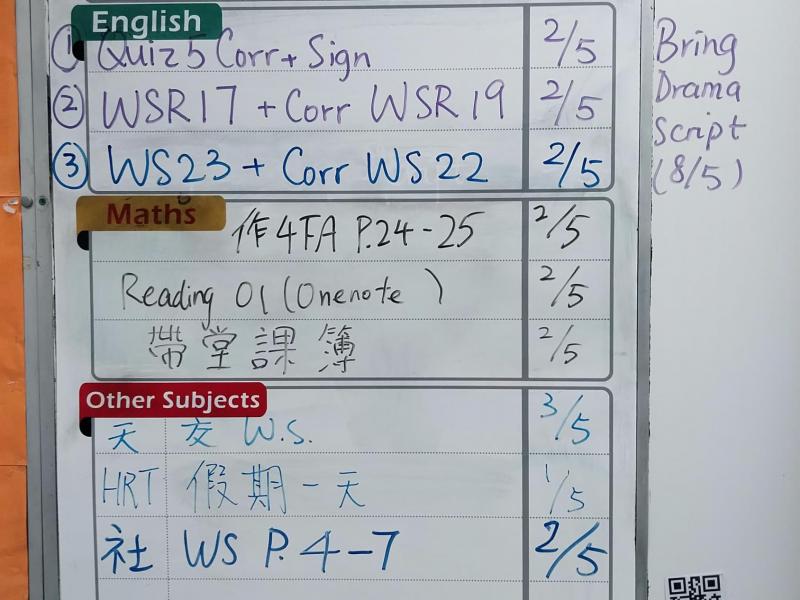 English
① Quiz 5 Corr + Sign 2/5
② WSR17 + Corr WSR19 2/5
③ WS23 + Corr WS22 2/5
Bring
Drama
Script
(8/5)
Maths
作4FA P.24-25 2/5
Reading 01 (Onenote) 2/5
帶堂課簿 2/5
Other Subjects
天 交 W.S. 3/5
HRT 假期一天 1/5
社 WS P.4-7 2/5